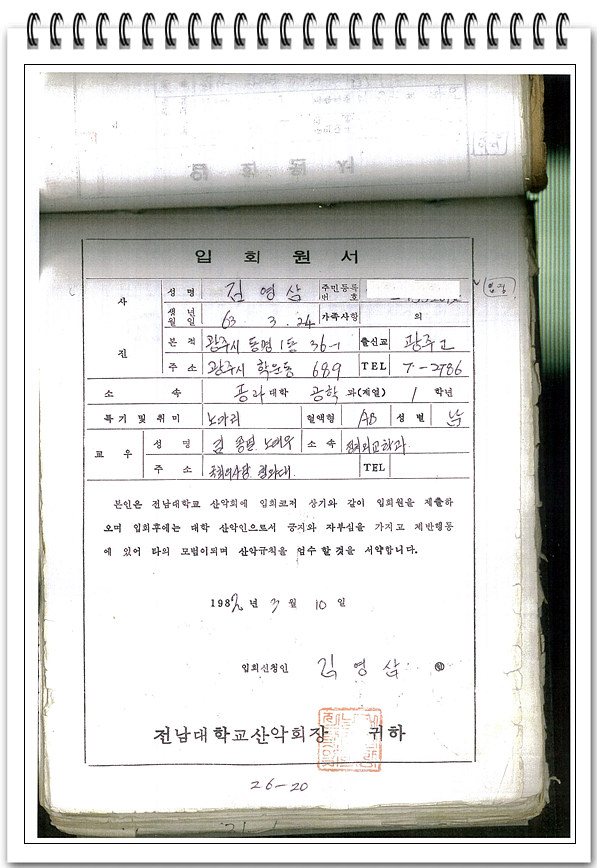 입회원서
사진
성명 김영삼 주민등록번호
생년월일 63. 3. 24 가족사항 의
본적 광주시 동명1동 36-1 출신교 광주고
주소 광주시 학운동 689 TEL 7-2786
소속 대학 공학 과(계열) 1 학년
특기 및 취미 노가리 혈액형 AB 성별
교우 성명 김종필 노태우 소속 정치외교학과
주소 TEL
본인은 전남대학교 산악회에 입회코저 상기와 같이 입회원을 제출하
오며 입회후에는 대학 산악인으로서 긍지와 자부심을 가지고 제반행동
에 있어 타의 모범이되며 산악규칙을 엄수 할것을 서약합니다.
1982년 3월 10일
입회신청인 김영삼
전남대학교산악회장 귀하
26-20